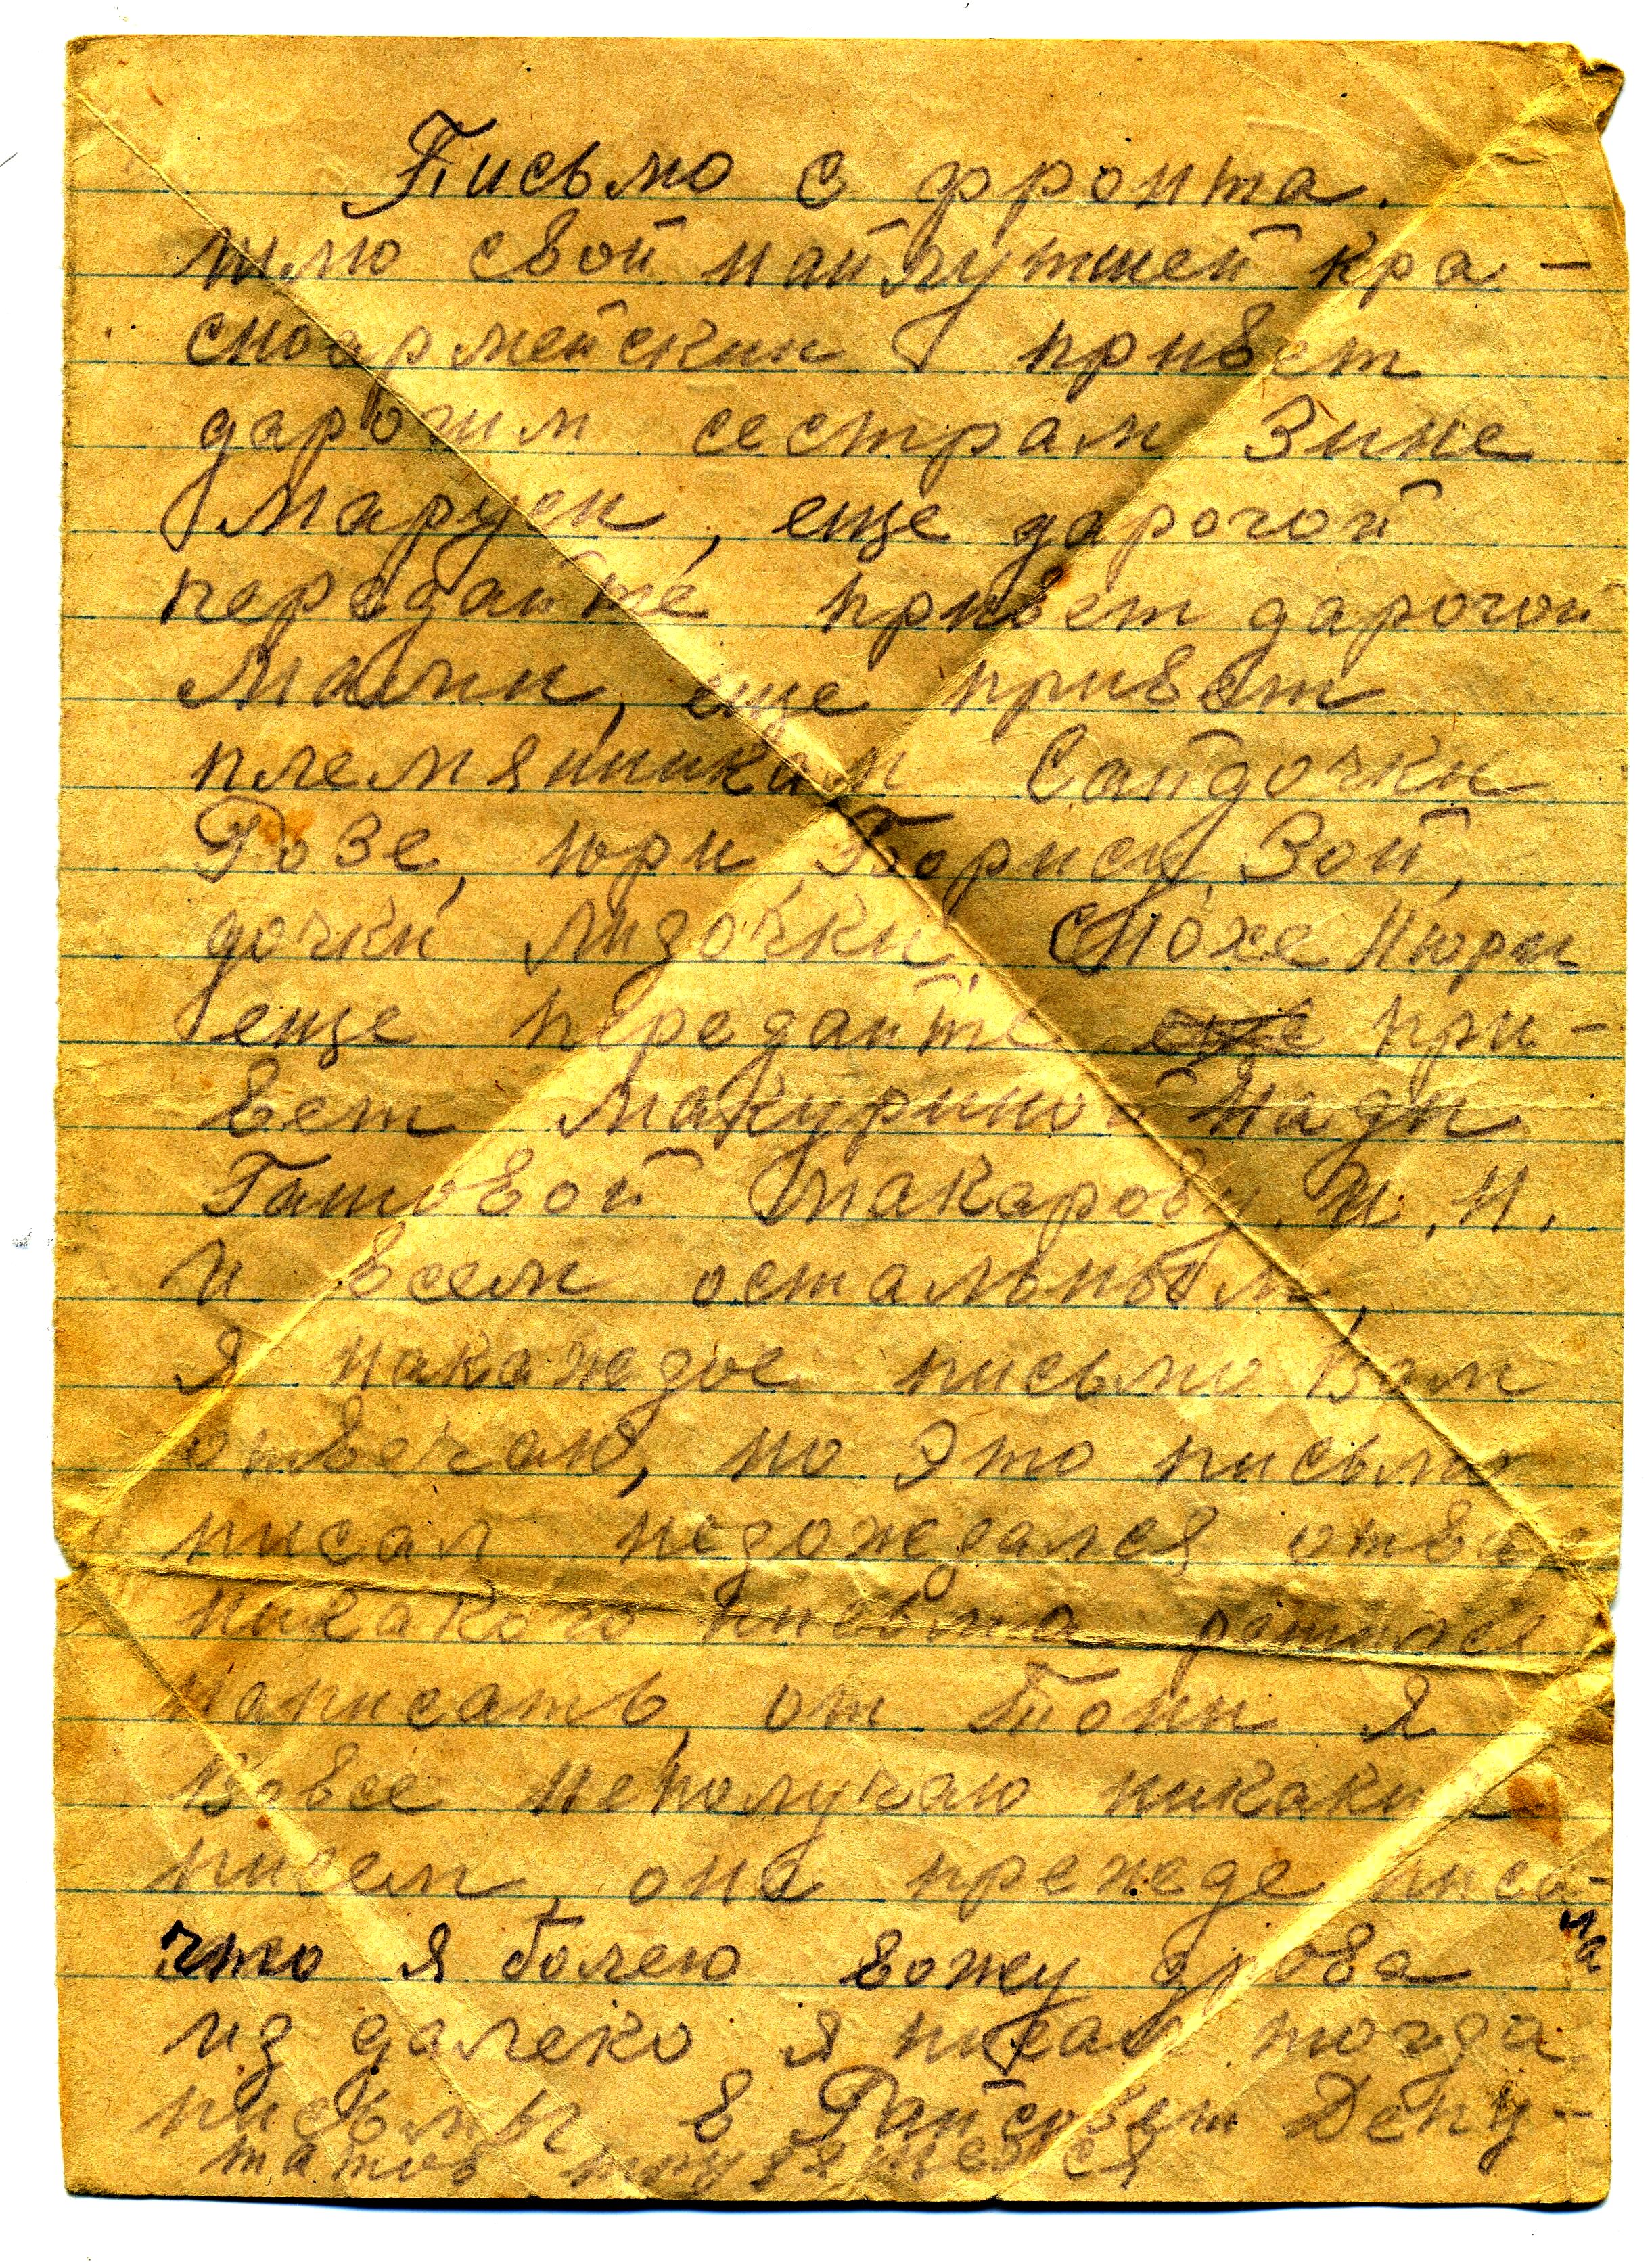 Письмо с фронта.
шлю свой найлутшей кра-
сноармейский привет
дарогим сестрам Зине
Маруси, еще дарогой
передайте привет дарогой
Мами, еще привет
племянникам
Розе, юри, Борису, Зой,
дочки Лидочки, снохе Нюри
еще передайте еще при-
вет Макуриной Нади
Титовой Макарову. И. Н.
и всем остальным,
Я накаждое письмо Вам
отвечаю, но это письмо
писал недождался отвас
никакого письма решился
написать, от Тони я
Вовсе неполучаю никаких
писем, она прежде писа-
ла
что я болею вожу дрова
из далеко я писал тогда
письмы в Райсовет Депу-
татов трудящехся